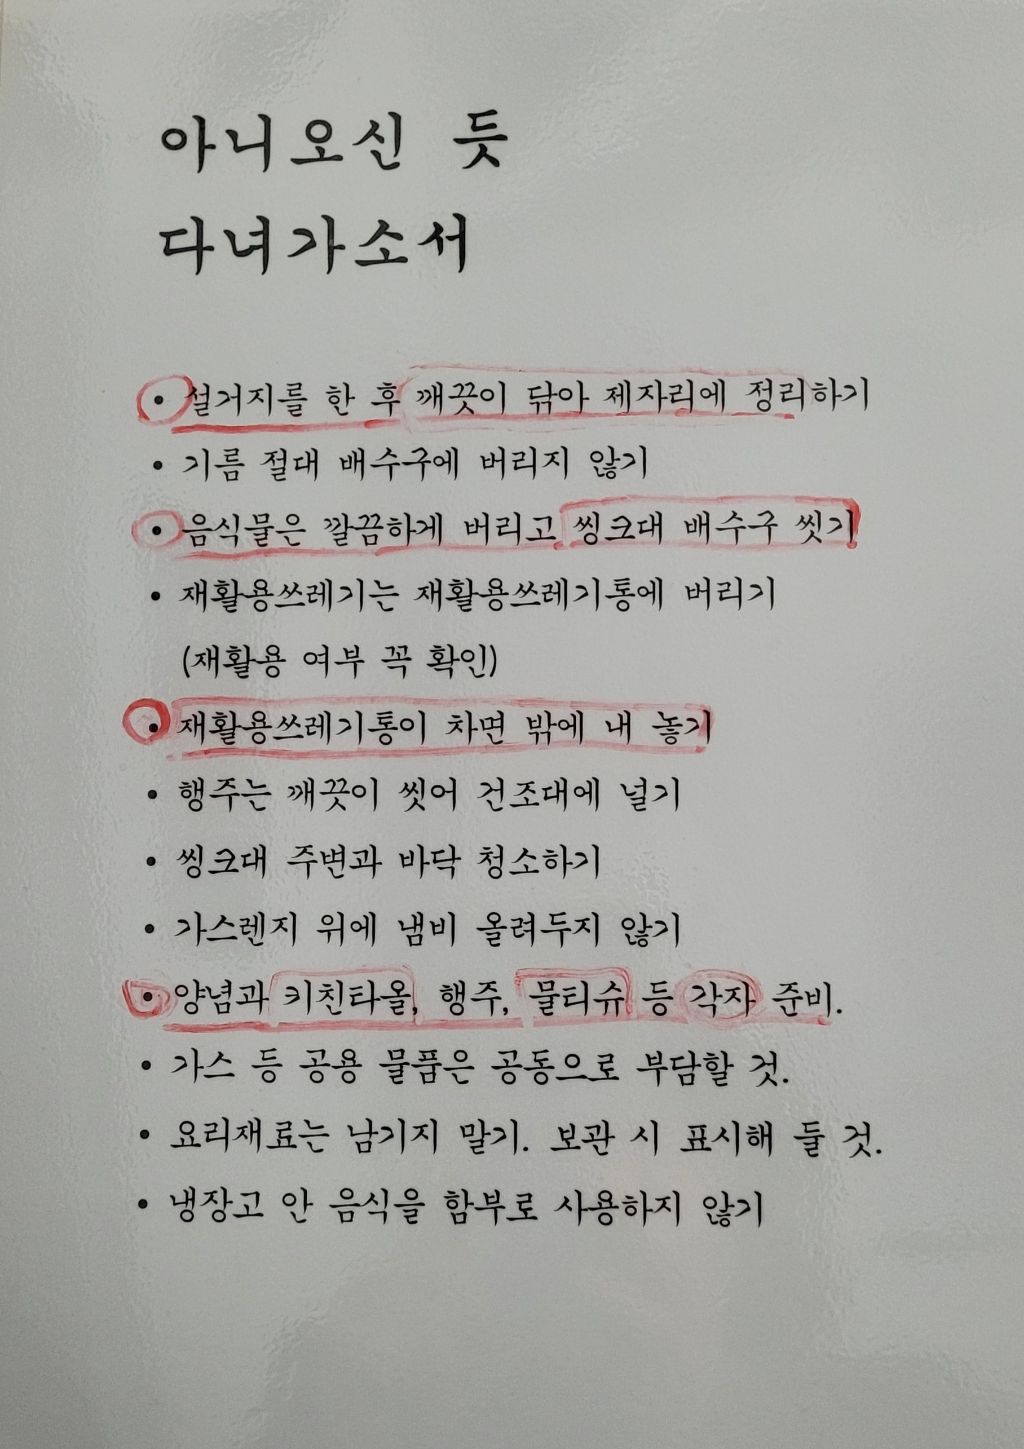 아니오신 듯
다녀가소서
• 설거지를 한 후 깨끗이 닦아 제자리에 정리하기
• 기름 절대 배수구에 버리지 않기
• 음식물은 깔끔하게 버리고 씽크대 배수구 씻기
• 재활용쓰레기는 재활용쓰레기통에 버리기
(재활용 여부 꼭 확인)
• 재활용쓰레기통이 차면 밖에 내 놓기
• 행주는 깨끗이 씻어 건조대에 널기
• 씽크대 주변과 바닥 청소하기
• 가스렌지 위에 냄비 올려두지 않기
• 양념과 키친타올, 행주, 물티슈 등 각자 준비.
• 가스 등 공용 물품은 공동으로 부담할 것.
• 요리재료는 남기지 말기. 보관 시 표시해 둘 것.
• 냉장고 안 음식을 함부로 사용하지 않기